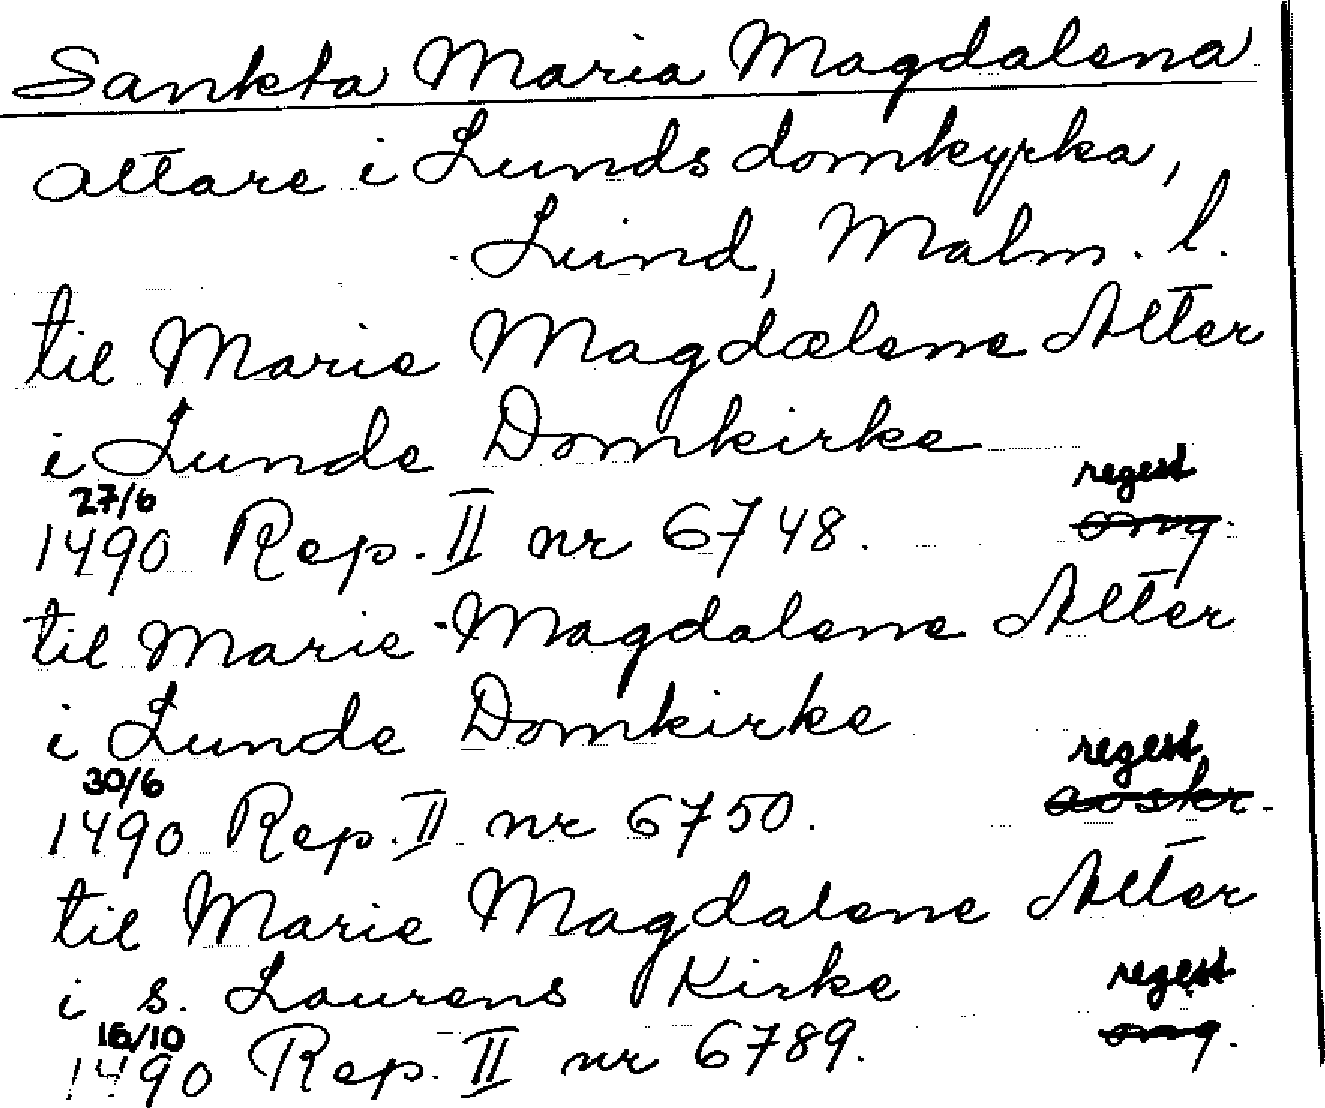 Sankta Maria Magdalena
altare i Lunds domkyrka,
Lund, Malm. l.
til Marie Magdælene Alter
i Lunde Domkirke
regest
27/6
1490 Rep. II nr 6748. omg.
til Marie Magdalene Alter
i Lunde Domkirke
regest
30/6
1490 Rep. II nr 6750. avskr.
til Marie Magdalene Alter
i s. Laurens Kirke
regest
16/10
1490 Rep. II nr 6789. omg.